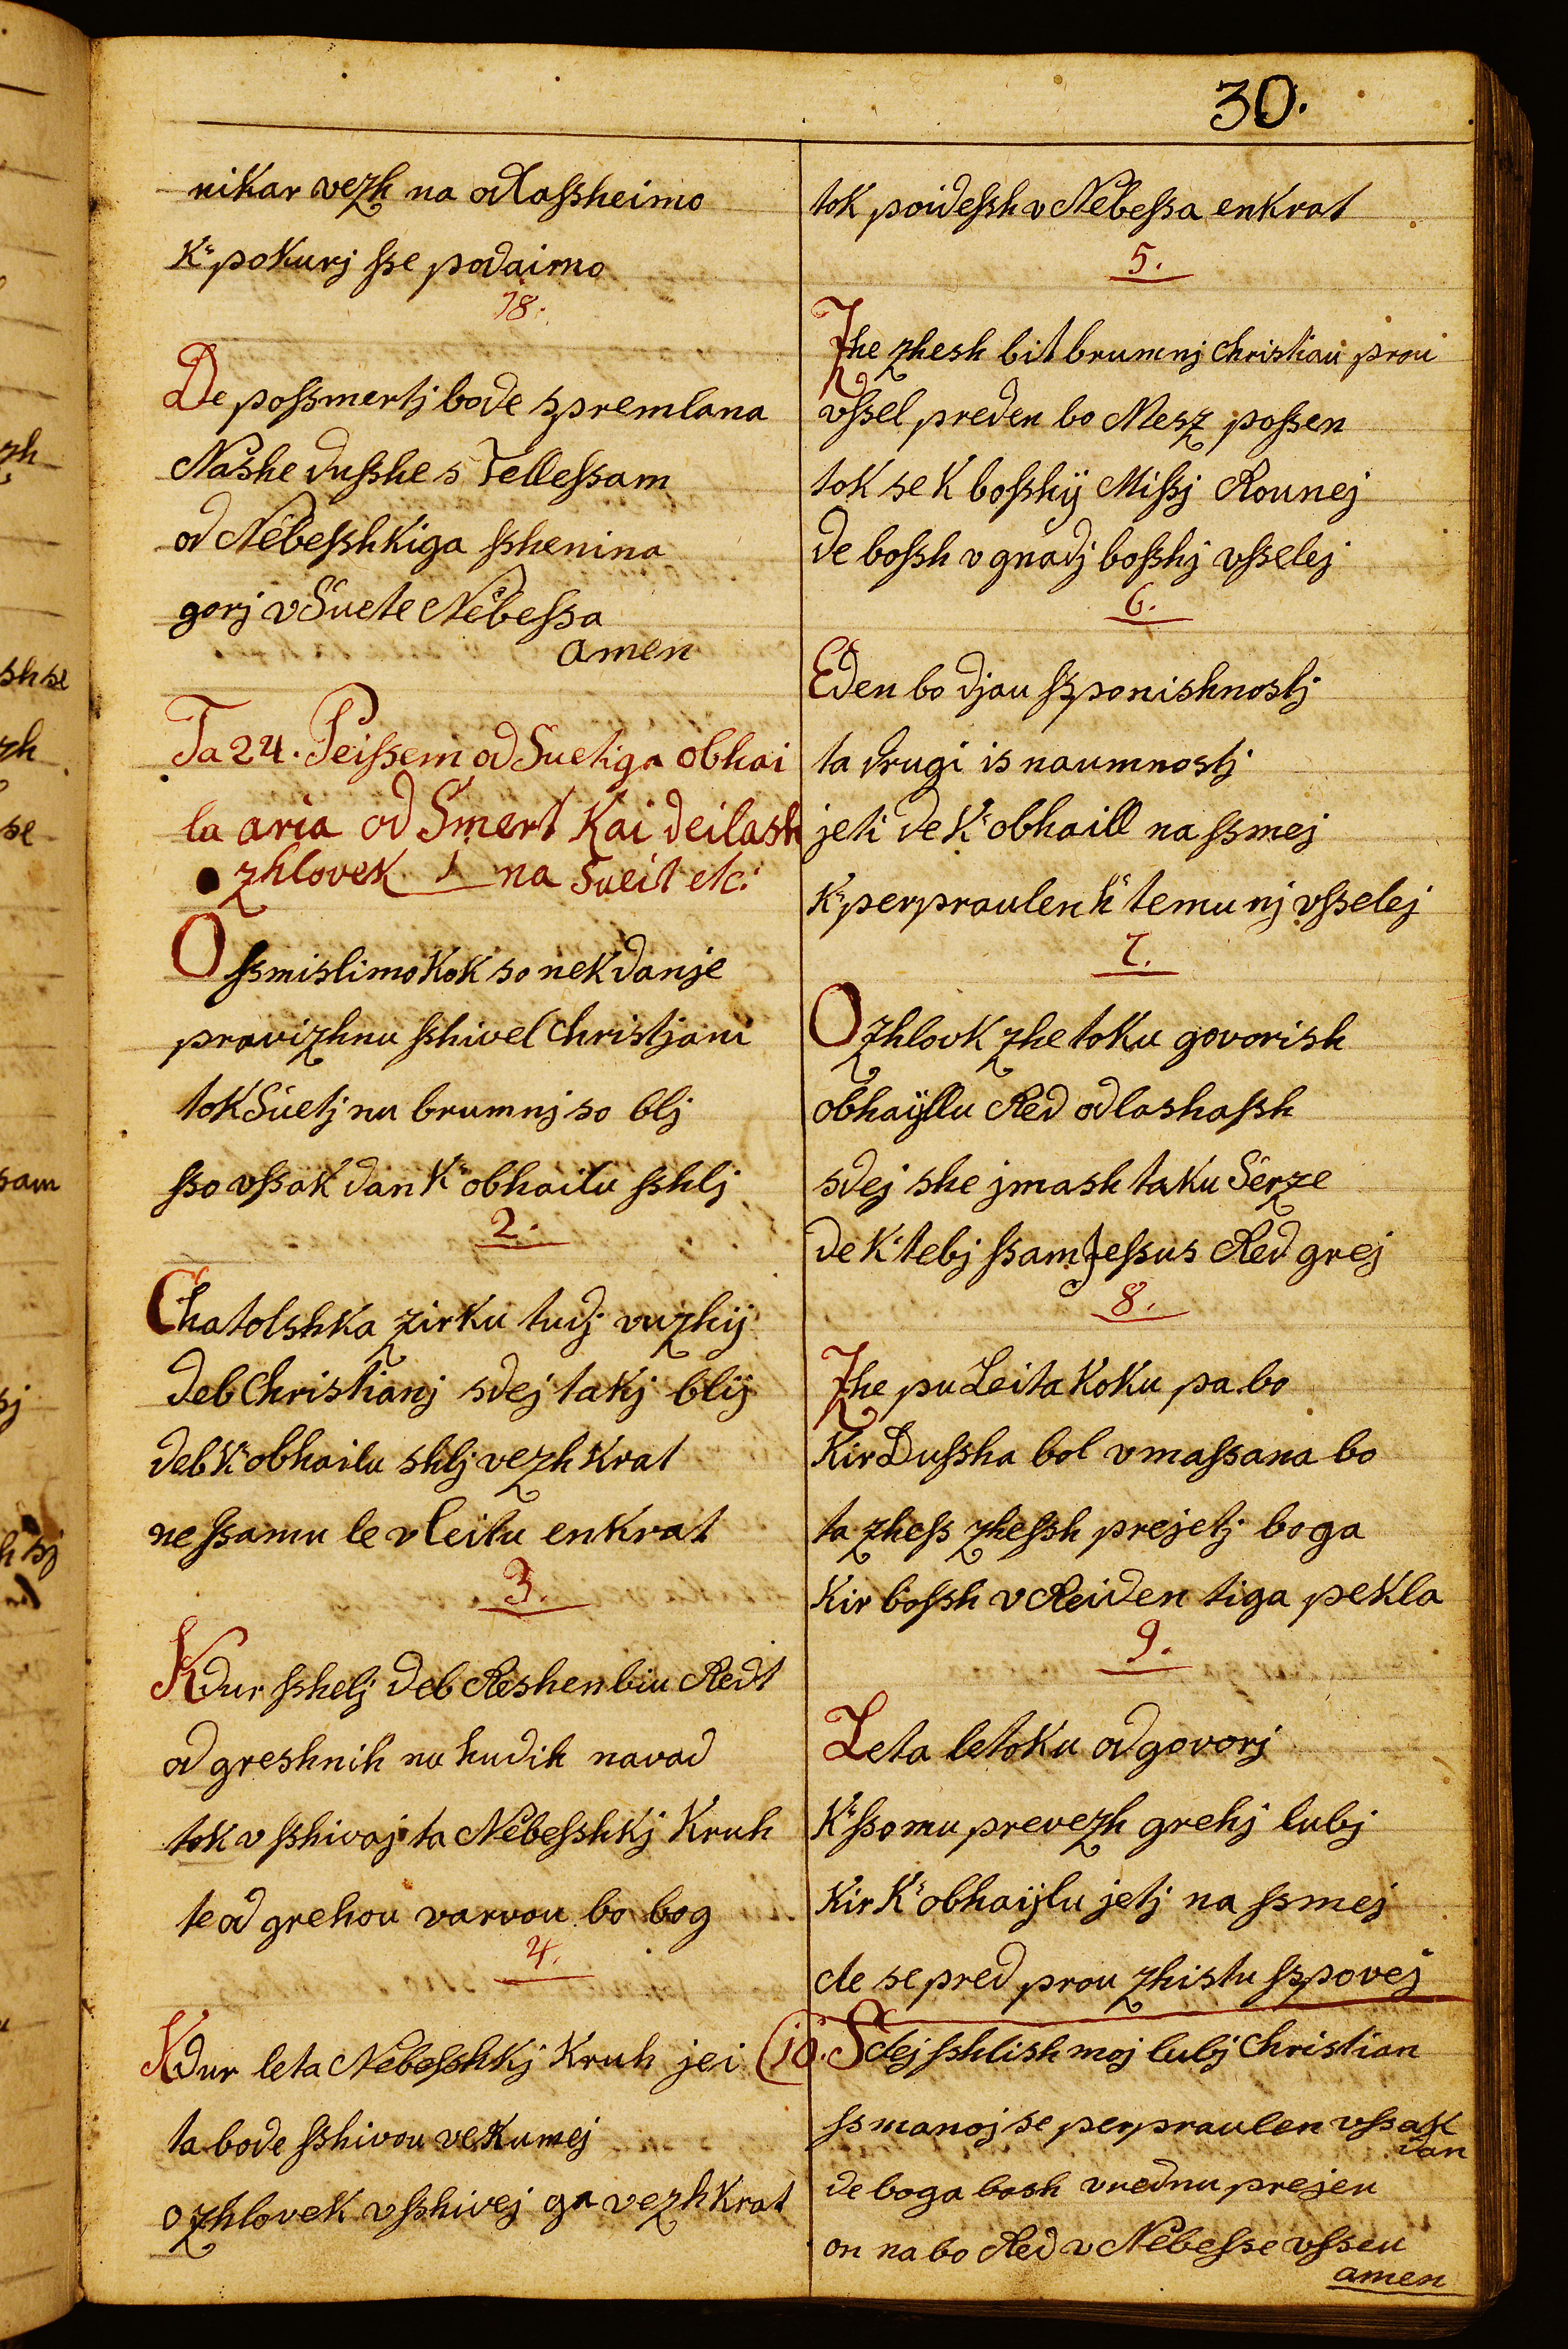 30.
nikar vezh na odlaſsheimo
K" pokurj ſse podaimo
18.
De poſsmertj bode spremlana
Nashe duſshe s Telleſsam
od Nebeſshkiga ſshenina
gorj v Suete Nebeſsa
amen
Ta 24. Peiſsem od Suetiga obhai
la aria od Smert Kai deilash
zhlovek 1 na Sueit etc:
O ſsmislimo Kok so nekdanje
pravizhnu ſshivel Christjani
tok Suetj nu brumnj so blj
ſso vſsak dan K" obhailu ſshlj
2.
Chatolshka zirku tudj vuzhij
deb Christianj sdej takj blij
deb K" obhailu shlj vezh Krat
ne ſsamu le v Leitu enkrat
3.
Kdur ſshelj deb Reshen biu Redt
od greshnih nu hudih navad
tok vſshivaj ta Nebeſshkj Kruh
te od grehou varvou bo bog
4.
Kdur leta Nebeſshkj Kruh jei
ta bode ſshivou vekumej
o zhlovek vſshivej ga vezh Krat
tok poideſsh v Nebeſsa enkrat
5.
Zhe zhesh bit brumnj Christiau prou
vſsel preden bo Mesz poſsen
tok se K boſshij Miſsj Rounej
de boſsh v gnadj boſshj vſselej
6.
Eden bo djau ſsponishnostj
ta drugi is naumnostj
jeti de K" obhaill na ſsmej
K" perpraulen k" temu nj vſselej
7.
O zhlovk zhe toku govorish
obhaijllu Red odlashaſsh
sdej she jmash taku Serze
de K" tebj ſsam Jeſsus Red grej
8.
Zhe pu Leita koku pa bo
Kir Duſsha bol vmaſsana bo
ta zheſs zheſsh prejetj boga
Kir boſsh v Reiden tiga pekla
9.
Leta letoku odgovorj
K" ſsomu prevezh grehj lubj
Kir K" obhaijlu jetj na ſsmej
de se pred prou zhistu ſspovej
10. Sdej ſshlish moj lubj Christian
ſsmanoj se perpraulen vſsak
dan
de boga bosh vrednu prejeu
on na bo Red v Nebeſse vſseu
amen